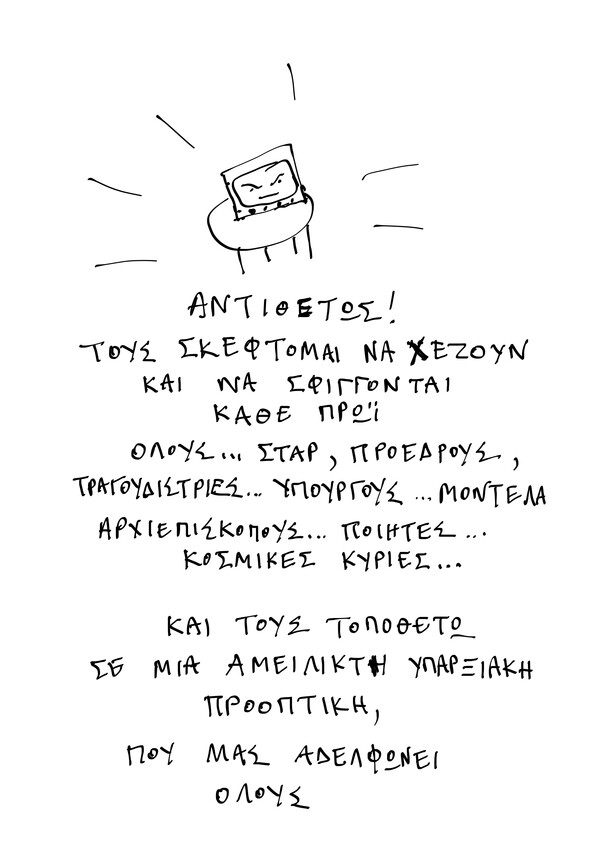 ΑΝΤΙΘΕΤΩΣ!
ΤΟΥΣ ΣΚΕΦΤΟΜΑΙ ΝΑ ΧΕΖΟΥΝ
ΚΑΙ ΝΑ ΣΦΙΓΓΟΝΤΑΙ
ΚΑΘΕ ΠΡΩΪ
ΟΛΟΥΣ... ΣΤΑΡ, ΠΡΟΕΔΡΟΥΣ,
ΤΡΑΓΟΥΔΙΣΤΡΙΕΣ... ΥΠΟΥΡΓΟΥΣ ... ΜΟΝΤΕΛΑ
ΑΡΧΙΕΠΙΣΚΟΠΟΥΣ... ΠΟΙΗΤΕΣ ...
ΚΟΣΜΙΚΕΣ ΚΥΡΙΕΣ...
ΚΑΙ ΤΟΥΣ ΤΟΠΟΘΕΤΩ
ΣΕ ΜΙΑ ΑΜΕΙΛΙΚΤΗ ΥΠΑΡΞΙΑΚΗ
ΠΡΟΟΠΤΙΚΗ,
ΠΟΥ ΜΑΣ ΑΔΕΛΦΩΝΕΙ
ΟΛΟΥΣ